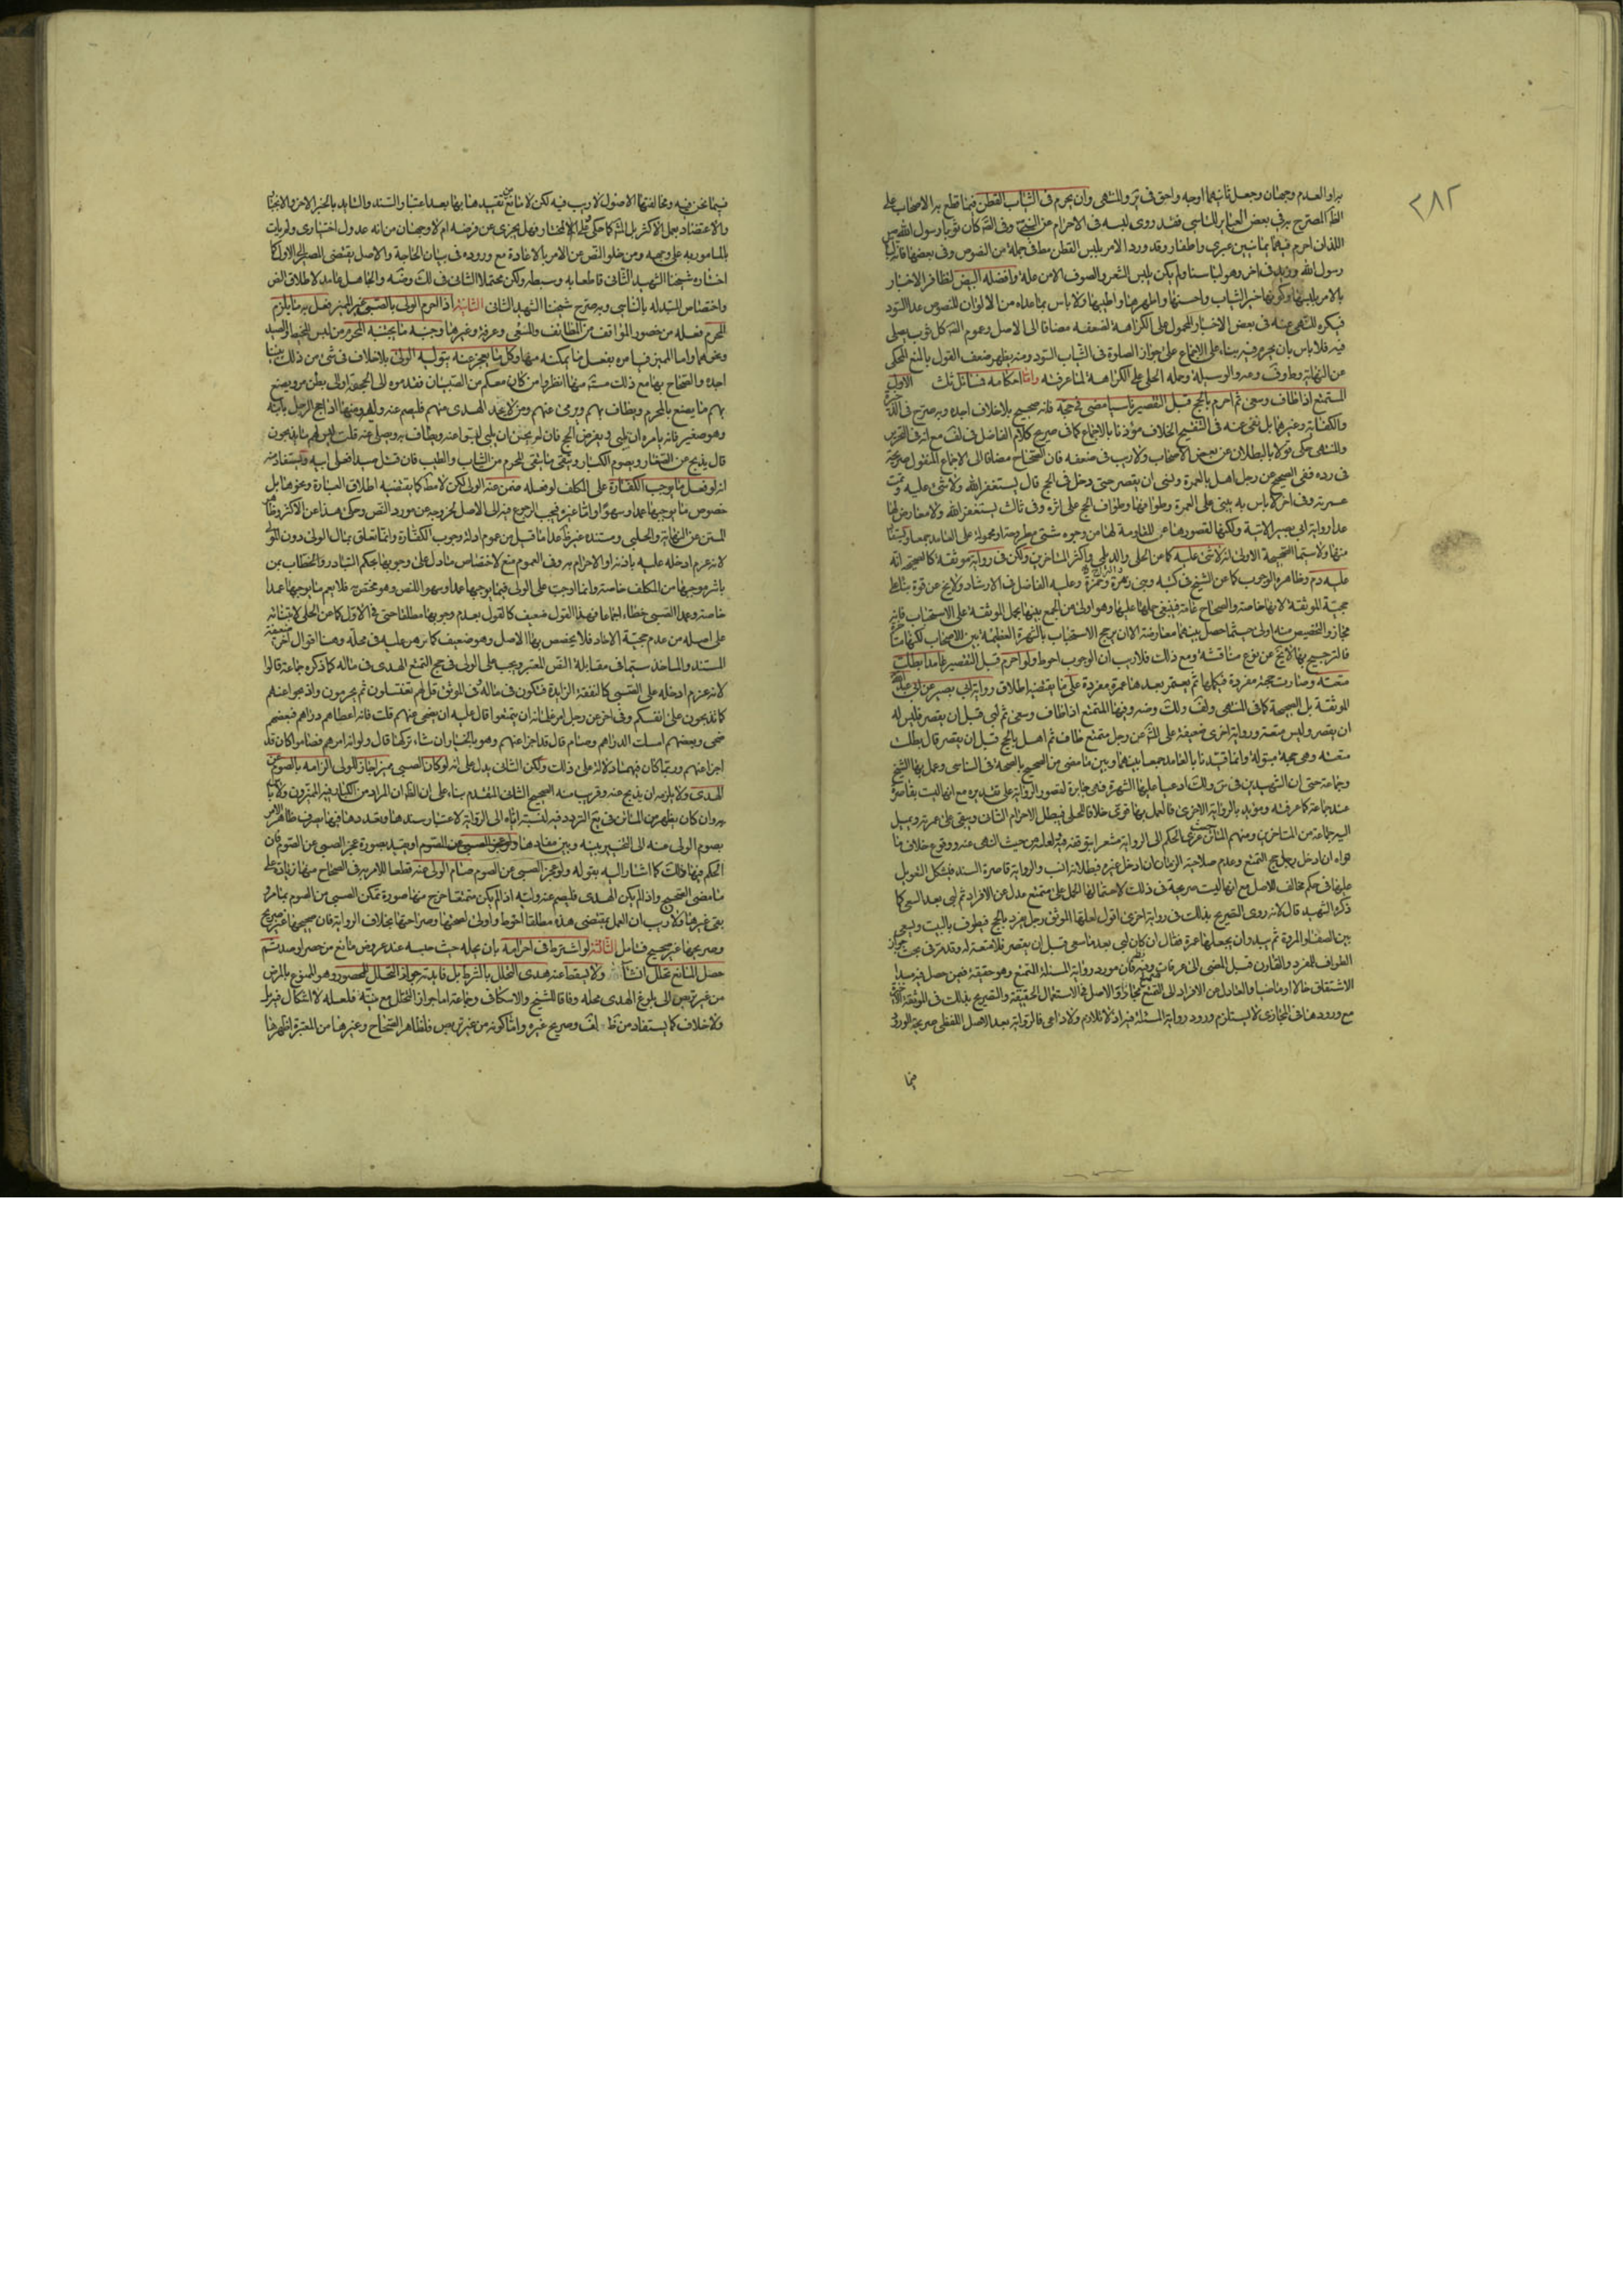 ٢٨٢
براو العدم وجهان وجعل ثانيهما اوجه واحق في ير والمنتهى وان يحرم في الثياب القطن فيما قطع به الاصحاب على
اللذان احرم فيهما يمانيين عبري واظفار وقد ورد الامر بلبس القطن مط في جملة من النصوص وفي بعضها فانه لباس
رسول الله وفي اخر وهو لباسنا ولم يكن يلبس الشعر والصوف الا من علة وافضله البيض لتظافر الاخبار
بالامر بلبسها وكونها خير الثياب واحسنها واطهرها واطيبها ولا باس بما عداه من الالوان للنصوص عدا السود
فيكره للنهي عنه في بعض الاخبار المحمول على الكراهة لضعفه مضافا الى الاصل وعموم كل ثوب يصلى
فيه فلا باس بان يحرم فيه بناء على الاجماع على جواز الصلوة في الثياب السود ومنه يظهر ضعف القول بالمنع المحكي
عن النهاية وط وف وعد والوسيلة وحمله الحلي على الكراهة لما عرفته واما احكامه فسائل ثلث الاولى
المتمتع اذا طاف وسعى ثم احرم بالحج قبل التقصير ناسيا مضى في حجه فانه صحيح بلا خلاف اجده وبه صرح في
في رده ففي الصحيح عن رجل اهل بالعمرة ونسي ان يقصر حتى دخل في الحج قال يستغفر الله ولا شيء عليه وتمت
عمرته وفي اخر لا باس به يبني على العمرة وطوافها وطواف الحج على اثره وفي ثالث يستغفر الله ولا معارض لها
عدا رواية ابي بصير الاتية ولكنها لقصورها عن المقاومة لها من وجوه شتى مطرحة او محمولة على العامد جمعا
منها ولا سيما الصحيحة الاولى انه لا شيء عليه كما عن الحلي والديلمي واكثر المتاخرين ولكن في رواية موثقة كالصحيح انه
عليه دم وظاهره الوجوب كما عن الشيخ في كتبه وبني زهرة وحمزة وعليه الفاضل في الارشاد ولا يخ عن قوة بناء على
حجية الموثقة لانها خاصة والصحاح عامة فينبغي حملها عليها وهو اولى من الجمع بينها بحمل الموثقة على الاستحباب فانه
مجاز والتخصيص منه اولى حيثما حصل بينهما معارضة الا ان يرجح الاستحباب بالشهرة العظيمة بين الاصحاب
فالترجيح بها لا يخ عن نوع مناقشة ومع ذلك فلا ريب ان الوجوب احوط ولو احرم قبل التقصير عامدا بطلت
متعته وصارت حجة مفردة فيكملها ثم يعتمر بعدها عمرة مفردة على ما يقتضيه اطلاق رواية ابي بصير عن ابي عبد الله
الموثقة بل الصحيحة كما في المنتهى ولف ولك وضه وفيها المتمتع اذا طاف وسعى ثم لبى قبل ان يقصر فليس له
ان يقصر وليس متعة ورواية اخرى ضعيفة على عن رجل متمتع طاف ثم اهل بالحج قبل ان يقصر قال بطلت
متعته وهي حجة مبتولة وانما قيدنا بالعامد جمعا بينهما وبين ما مضى من الصحيح بالصحة في الناسي وعمل بها الشيخ
وجماعة حتى ان الشهيدين في س ولك ادعيا عليها الشهرة فهي جابرة لقصور الرواية على تقديره مع انها ليست بقاصرة
عند جماعة كما عرفته ومؤيد بالرواية الاخرى فالعمل بها قوي خلافا للحلي فيبطل الاحرام الثاني ويبقى على عمرته ويميل
اليه جماعة من المتاخرين ومنهم الماتن حيث عزى الحكم الى الرواية مشعرا بتوقفه فيه ولعله من حيث النهي عنه ووقوع خلاف ما
نواه ان ادخل حج التمتع وعدم صلاحية الزمان ان ادخل غيره فبطلانه انسب والرواية قاصرة السند فيشكل التعويل
عليها في حكم مخالف الاصل مع انها ليست صريحة في ذلك لاحتمالها الحمل على متمتع عدل عن الافراد ثم لبى بعد السعي كما
ذكره الشهيد قال لانه روى التصريح بذلك في رواية اخرى اقول لعلها الموثق رجل يفرد بالحج فيطوف بالبيت ويسعى
بين الصفا والمروة ثم يبدو ان يجعلها عمرة فقال ان كان لبى بعد ما سعى قبل ان يقصر فلا متعة له وقد مر في بحث جواز
الطواف للمفرد والقارن قبل المضي الى عرفات وفيه فان مورد رواية المسئلة المتمتع وهو حقيقة فيمن حصل فيه مبدا
الاشتقاق حالا او ماضيا والعادل عن الافراد الى التمتع متمتع مجازا والاصل في الاستعمال الحقيقة والتصريح بذلك في الموثقة
مع ورودها في المجازي لا يستلزم ورود رواية المسئلة فيه اذ لا تلازم ولا داعي فالرواية بعد الاصل اللفظي صريحة الورود
فيما
فيما نحن فيه ومخالفتها الاصول لا ريب فيه لكن لا مانع من تقييدها بها بعد اعتبار السند والتايد بالخبر الاخر والانجبار
والاعتضاد بعمل الاكثر بل المشهور كما حكي ثم على المختار فهل يجزي عن فرضه ام لا وجهان من انه عدول اختياري ولم يات
بالمامور به على وجهه ومن خلو النص عن الامر بالاعادة مع وروده في بيان الحاجة والاصل يقتضي المصير الى الاول كما
اختاره شيخنا الشهيد الثاني قاطعا به وسبطه ولكن محتملا الثاني في لك وضه والجاهل عامد لاطلاق النص
واختصاص المبتدله بالناسي وبه صرح شيخنا الشهيد الثاني الثانية اذا احرم الولي بالصبي غير المميز فعل به ما يلزم
المحرم فعله من حضور المواقف من الطائف والسعي وعرفة وغيرها وجنبه ما يجتنبه المحرم من لبس المخيط والصيد
ونحوهما واما المميز فيامره بفعل ما يمكنه منها وكل ما يعجز عنه يتولاه الولي بلا خلاف في شيء من ذلك بيننا
اجده والصحاح بها مع ذلك مستفيضة منها انظروا من كان معكم من الصبيان فقدموه الى الجحفة او الى بطن مر ويصنع
بهم ما يصنع بالمحرم ويطاف بهم ويرمى عنهم ومن لا يجد الهدي منهم فليصم عنه وليه ومنها اذا حج الرجل بابنه
وهو صغير فانه يامره ان يلبي ويفرض الحج فان لم يحسن ان يلبي لبوا عنه ويطاف به ويصلى عنه قلت ليس لهم ما يذبحون
قال يذبح عن الصغار ويصوم الكبار ويتقى ما يتقى المحرم من الثياب والطيب فان قتل صيدا فعلى ابيه ويستفاد منه
انه لو فعل ما يوجب الكفارة على المكلف لو فعله ضمن عنه الولي لكن لا مط كما يقتضيه اطلاق العبارة ونحوها بل
خصوص ما يوجبها عمدا وسهوا واما غيره فيجب الرجوع فيه الى الاصل لخروجه عن مورد النص وحكي هذا عن الاكثر
المتن عن النهاية والحلبي ومستنده غير ظ عدا ما قيل من عموم ادلة وجوب الكفارة وانما تتعلق بمال الولي دون المولى
لانه غرم ادخله عليه باذنه او الاحرام به وفي العموم منع لاختصاص ما دل على وجوبها بحكم التبادر والخطاب بمن
باشر موجبها من المكلف خاصة وانما اوجبت على الولي فيما يوجبها عمدا وسهوا للنص وهو مختص به فلا يعم ما يوجبها عمدا
خاصة وعمد الصبي خطاء اجماعا فهذا القول ضعيف كالقول بعدم وجوبها مطلقا حتى في الاول كما عن الحلي لابتنائه
على اصله من عدم حجية الاحاد فلا يخصص بها الاصل وهو ضعيف كما برهن عليه في محله وهنا اقوال اخر ضعيفة
المستند والماخذ سيما في مقابلة النص المعتبر ويجب على الولي في حج التمتع الهدي في ماله كما ذكره جماعة قالوا
لانه غرم ادخله على الصبي كالنفقة الزايدة فتكون في ماله وفي الموثق قل لهم تغتسلون ثم يحرمون واذبحوا عنهم
كما تذبحون على انفسكم وفي اخر عن رجل امر غلمانه ان يتمتعوا قال عليه ان يضحي عنهم قلت فانه اعطاهم دراهم فبعضهم
ضحى وبعضهم امسك الدراهم وصام قال قد اجزا عنهم وهو بالخيار ان شاء تركها قال ولو انه امرهم فصاموا كان قد
اجزا عنهم وربما كان فيهما دلالة على ذلك ولكن الثاني يدل على انه لو كان الصبي مميزا جاز للولي الزامه بالصوم عن
الهدي ولا يلزمه ان يذبح عنه وقريب منه الصحيح الثاني المتقدم بناء على ان الظ ان المراد من الكبار فيه المميزون ولا باس
به وان كان يظهر من الماتن في يع التردد فيه لنسبته اياه الى الرواية لاعتبار سندها وتعددها فيها يصرف ظاهر الامر
بصوم الولي عنه الى التخيير بينه وبين مفادها ولو عجز الصبي عن الصوم او يقيد بصورة عجز الصبي عن الصوم فان
الحكم فيها ذلك كما اشار اليه بقوله ولو عجز الصبي عن الصوم صام الولي عنه قطعا للامر به في الصحاح منها زيادة على
ما مضى الصحيح واذا لم يكن الهدي فليصم عنه وليه اذا لم يكن متمتعا خرج منها صورة تمكن الصبي من الصوم بما مر و
بقي غيرها ولا ريب ان العمل بمقتضى هذه مطلقا احوط واولى لصحتها وصراحتها بخلاف الرواية فان صحيحها غير صريح
وصريحها غير صحيح فتامل الثالثة لو اشترط في احرامه بان يحله حيث حبسه عند عروض مانع من حصر او صد ثم
حصل المانع تحلل انشاء ولا يسقط عنه هدي التحلل بالشرط بل فايدته جواز التحلل للمحصور وهو الممنوع بالمرض
من غير تربص الى بلوغ الهدي محله وفاقا للشيخ والاسكافي وجماعة اما جواز التحلل مع نيته فلعله لا اشكال فيه
ولا خلاف كما يستفاد من ظ لف وصريح غيره واما كونه من غير تربص فلظاهر الصحاح وغيرها من المعتبرة اظهرها